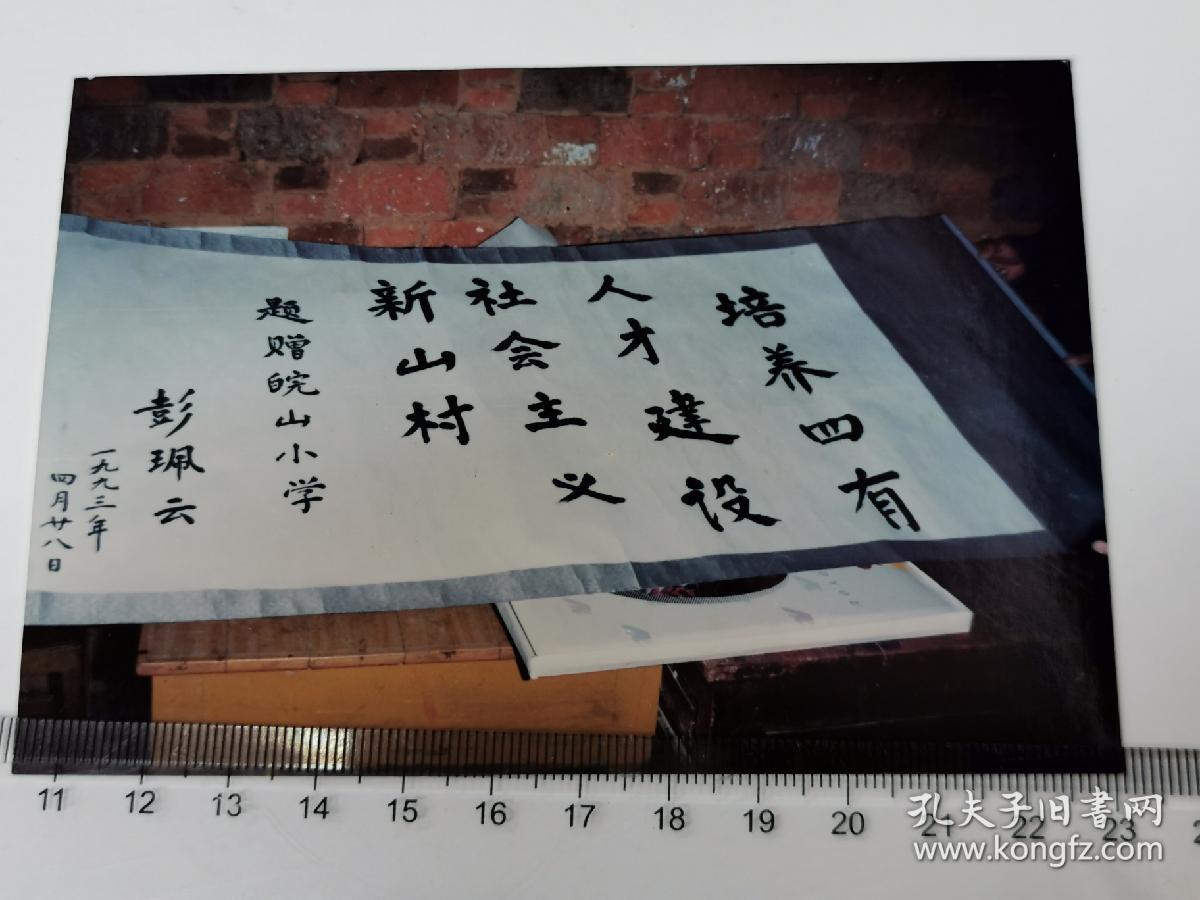 培养四有
人才建设
社会主义
新山村
题赠皖山小学
彭珮云
一九九三年
四月廿八日
11 12 13 14 15 16 17 18 19 20 21 22 23
孔夫子旧书网
www.kongfz.com